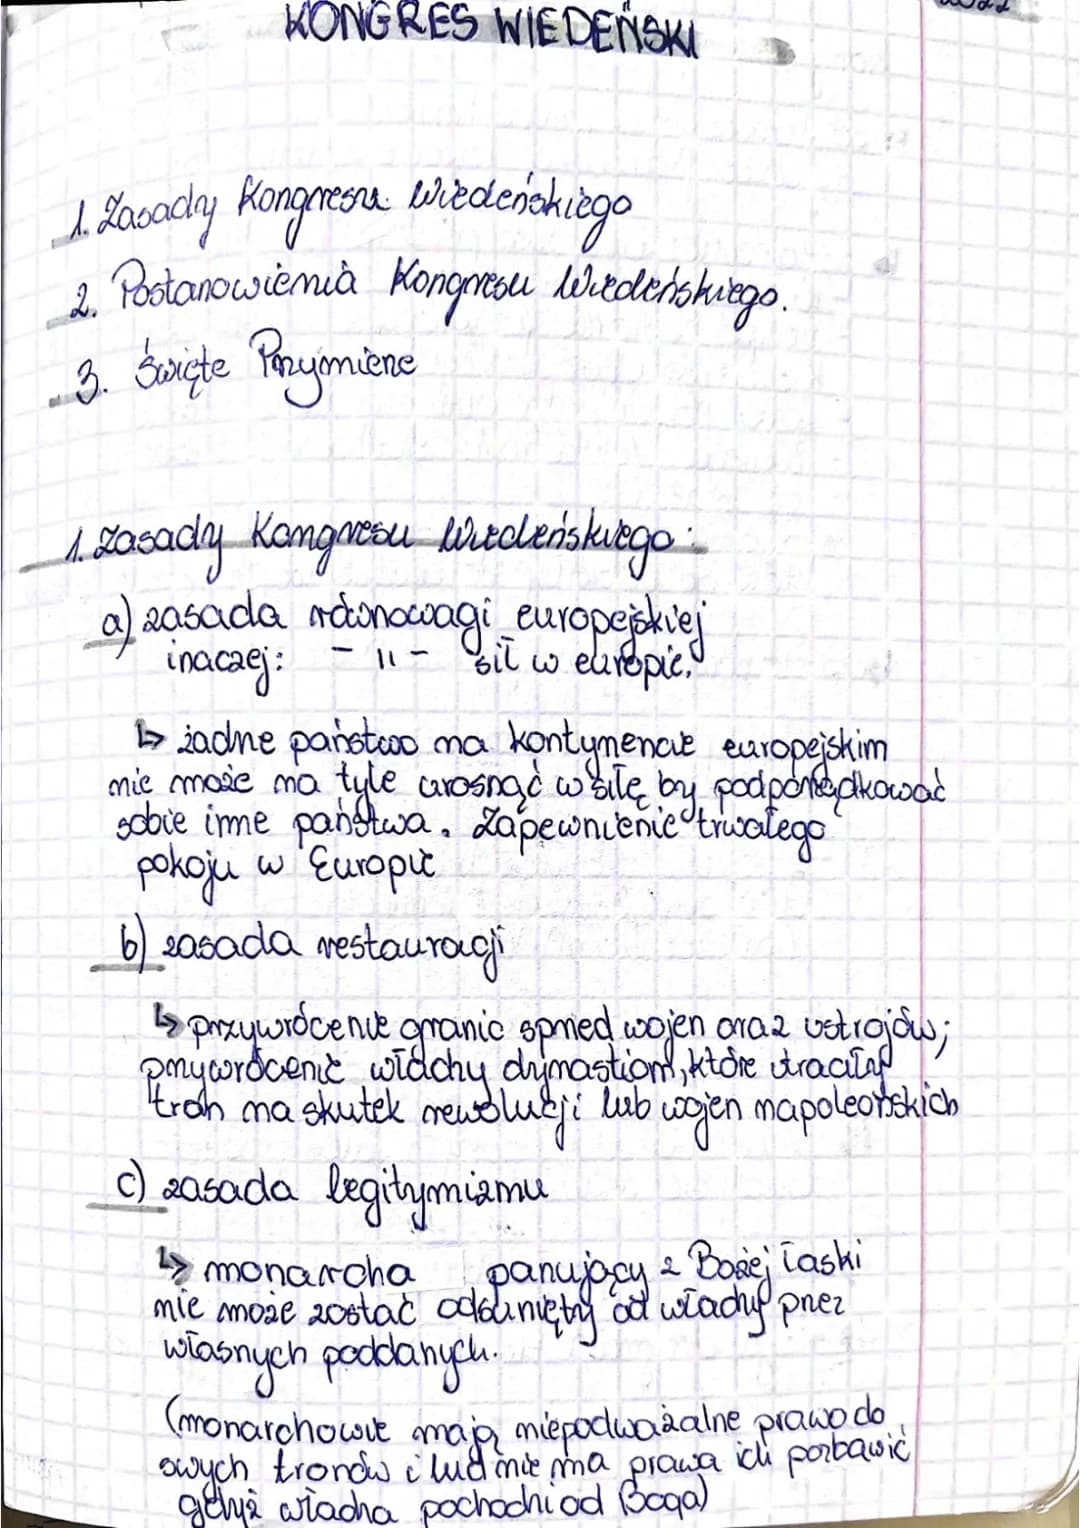 KONGRES WIEDEŃSKI
1. Zasady Kongresu Wiedeńskiego
2. Postanowienia Kongresu Wiedeńskiego.
3. Święte Przymierze
1. Zasady Kongresu Wiedeńskiego:
a) zasada równowagi europejskiej
inaczej: - 11 - sił w europie.
↳ żadne państwo na kontynencie europejskim
nie może na tyle urosnąć w siłę by podporządkować
sobie inne państwa. Zapewnienie trwałego
pokoju w Europie
b) zasada restauracji
↳ przywrócenie granic sprzed wojen oraz ustrojów;
przywrócenie władzy dynastiom, które utraciły
tron na skutek rewolucji lub wojen napoleońskich
c) zasada legitymizmu
↳ monarcha panujący z Bożej łaski
nie może zostać odsunięty od władzy przez
własnych poddanych.
(monarchowie mają niepodważalne prawo do
swych tronów i lud nie ma prawa ich pozbawić
gdyż władza pochodzi od Boga)